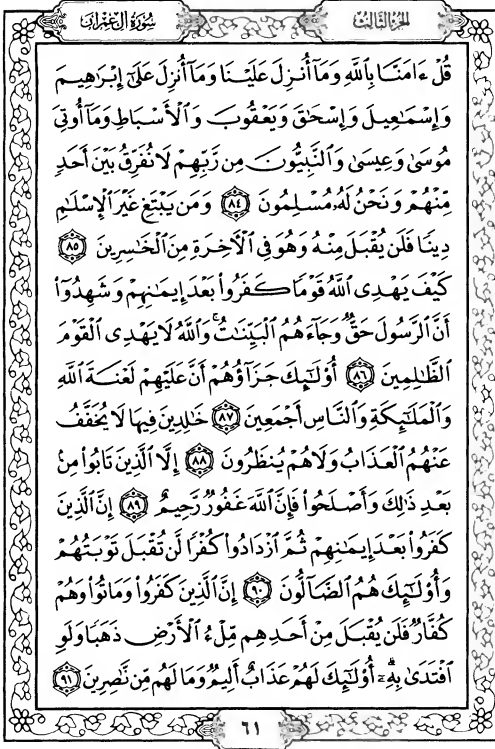 سُورَةُ آلِ عِمْرَانَ
الجزء الثالث
قُلْ ءَامَنَّا بِٱللَّهِ وَمَآ أُنزِلَ عَلَيْنَا وَمَآ أُنزِلَ عَلَىٰٓ إِبْرَٰهِيمَ
وَإِسْمَٰعِيلَ وَإِسْحَٰقَ وَيَعْقُوبَ وَٱلْأَسْبَاطِ وَمَآ أُوتِىَ
مُوسَىٰ وَعِيسَىٰ وَٱلنَّبِيُّونَ مِن رَّبِّهِمْ لَا نُفَرِّقُ بَيْنَ أَحَدٍ
مِّنْهُمْ وَنَحْنُ لَهُۥ مُسْلِمُونَ ٨٤ وَمَن يَبْتَغِ غَيْرَ ٱلْإِسْلَٰمِ
دِينًا فَلَن يُقْبَلَ مِنْهُ وَهُوَ فِى ٱلْءَاخِرَةِ مِنَ ٱلْخَٰسِرِينَ ٨٥
كَيْفَ يَهْدِى ٱللَّهُ قَوْمًا كَفَرُوا۟ بَعْدَ إِيمَٰنِهِمْ وَشَهِدُوٓا۟
أَنَّ ٱلرَّسُولَ حَقٌّ وَجَآءَهُمُ ٱلْبَيِّنَٰتُ ۚ وَٱللَّهُ لَا يَهْدِى ٱلْقَوْمَ
ٱلظَّٰلِمِينَ ٨٦ أُو۟لَٰٓئِكَ جَزَآؤُهُمْ أَنَّ عَلَيْهِمْ لَعْنَةَ ٱللَّهِ
وَٱلْمَلَٰٓئِكَةِ وَٱلنَّاسِ أَجْمَعِينَ ٨٧ خَٰلِدِينَ فِيهَا لَا يُخَفَّفُ
عَنْهُمُ ٱلْعَذَابُ وَلَا هُمْ يُنظَرُونَ ٨٨ إِلَّا ٱلَّذِينَ تَابُوا۟ مِنۢ
بَعْدِ ذَٰلِكَ وَأَصْلَحُوا۟ فَإِنَّ ٱللَّهَ غَفُورٌ رَّحِيمٌ ٨٩ إِنَّ ٱلَّذِينَ
كَفَرُوا۟ بَعْدَ إِيمَٰنِهِمْ ثُمَّ ٱزْدَادُوا۟ كُفْرًا لَّن تُقْبَلَ تَوْبَتُهُمْ
وَأُو۟لَٰٓئِكَ هُمُ ٱلضَّآلُّونَ ٩٠ إِنَّ ٱلَّذِينَ كَفَرُوا۟ وَمَاتُوا۟ وَهُمْ
كُفَّارٌ فَلَن يُقْبَلَ مِنْ أَحَدِهِم مِّلْءُ ٱلْأَرْضِ ذَهَبًا وَلَوِ
ٱفْتَدَىٰ بِهِۦٓ ۗ أُو۟لَٰٓئِكَ لَهُمْ عَذَابٌ أَلِيمٌ وَمَا لَهُم مِّن نَّٰصِرِينَ ٩١
٦١